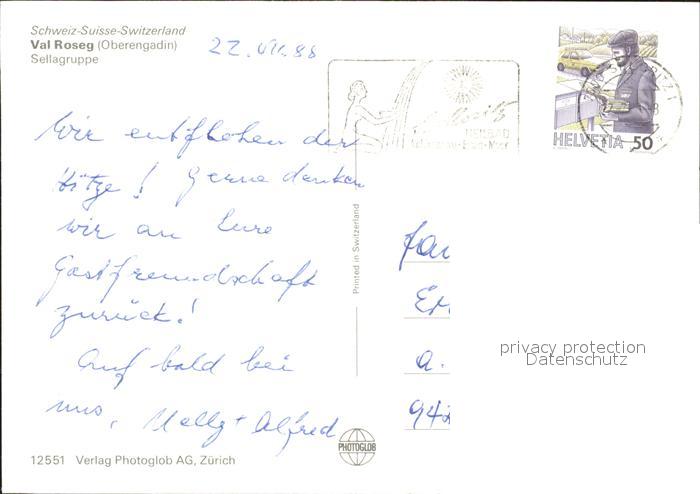 Schweiz-Suisse-Switzerland
Val Roseg (Oberengadin)
Sellagruppe
22. VII. 88
Wir entflohen der
Hitze! Gerne denken
wir an Eure
Gastfreundschaft
zurück!
Auf bald bei
uns, Nelly + Alfred
12551 Verlag Photoglob AG, Zürich
PHOTOGLOB
Printed in Switzerland
St. Moritz
HEILBAD
HELVETIA 50
Fam
a.
privacy protection
Datenschutz